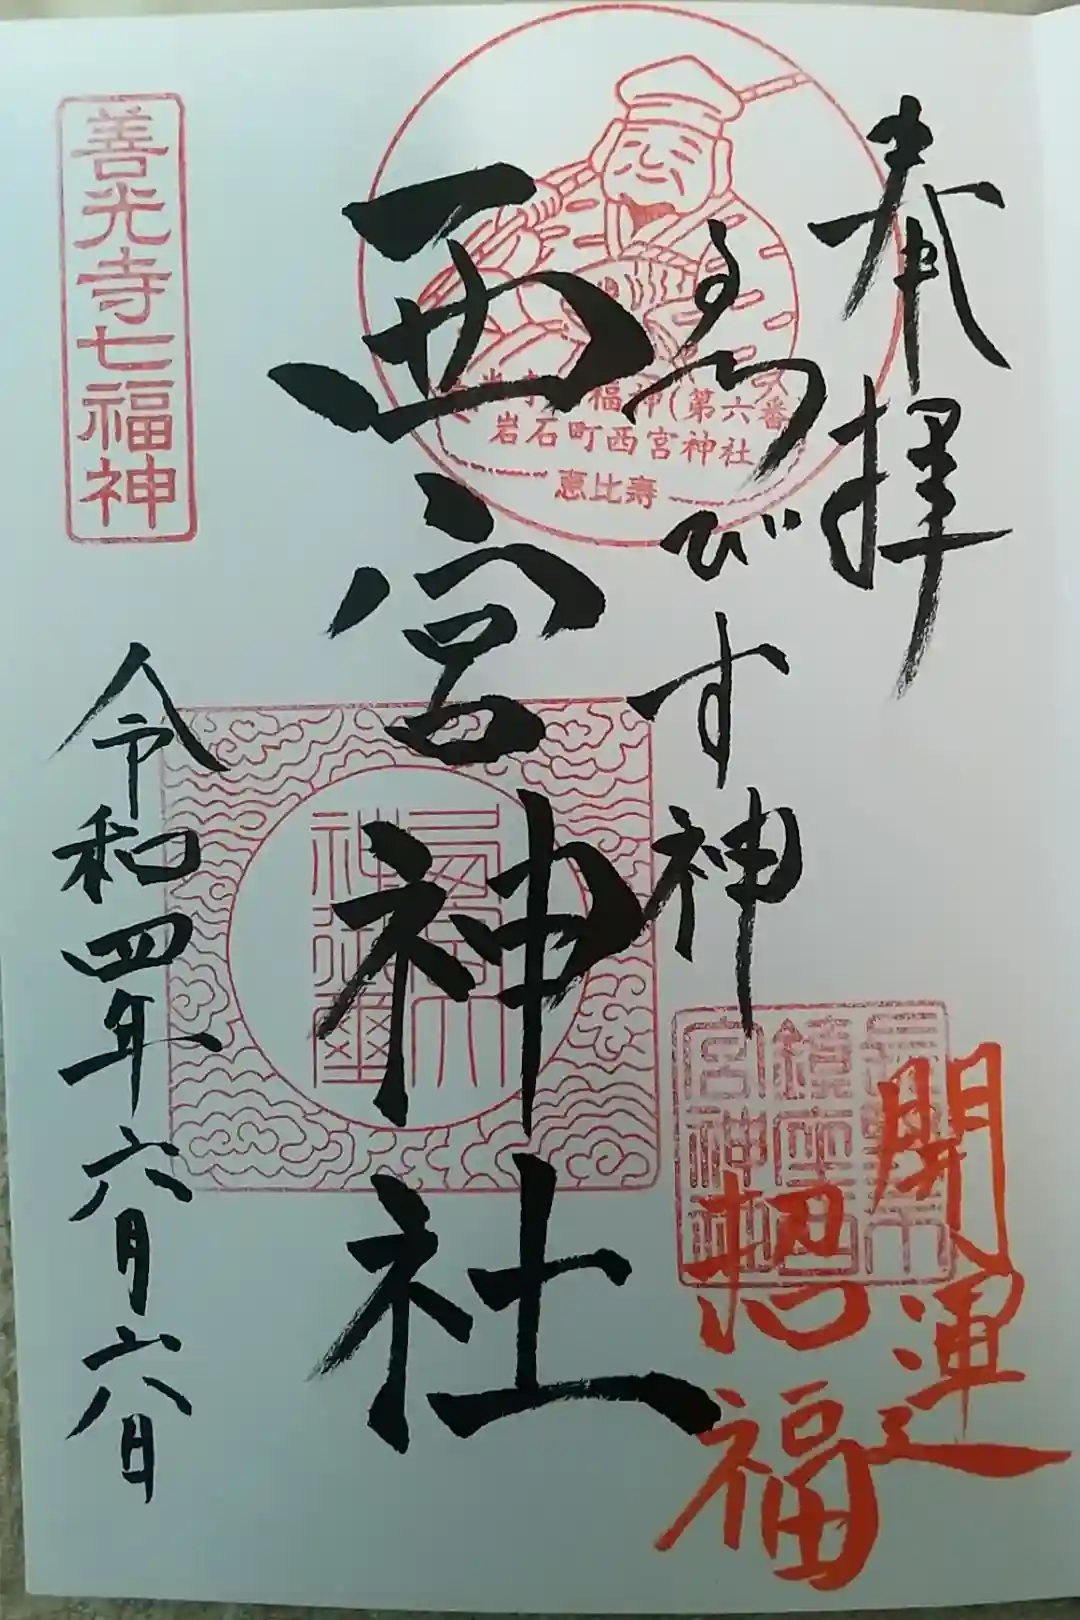 奉拝
開運
招福
ゑびす神
西宮神社
善光寺七福神(第六番)
岩石町西宮神社
恵比寿
善光寺七福神
令和四年六月六日